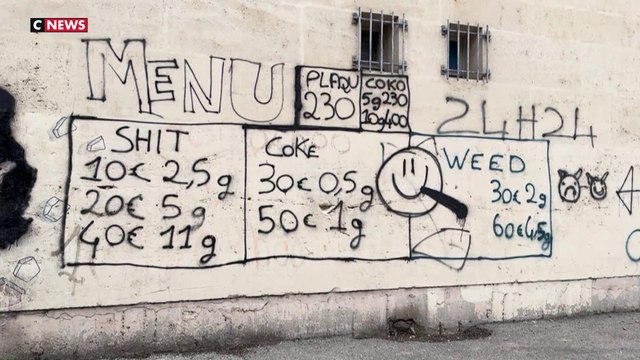 CNEWS
MENU
PLAQU
230
COKO
5g 230
10g 400
24H24
SHIT
10€ 2,5g
20€ 5g
40€ 11g
COKE
30€ 0,5g
50€ 1g
WEED
30€ 2g
60€ 4,5g